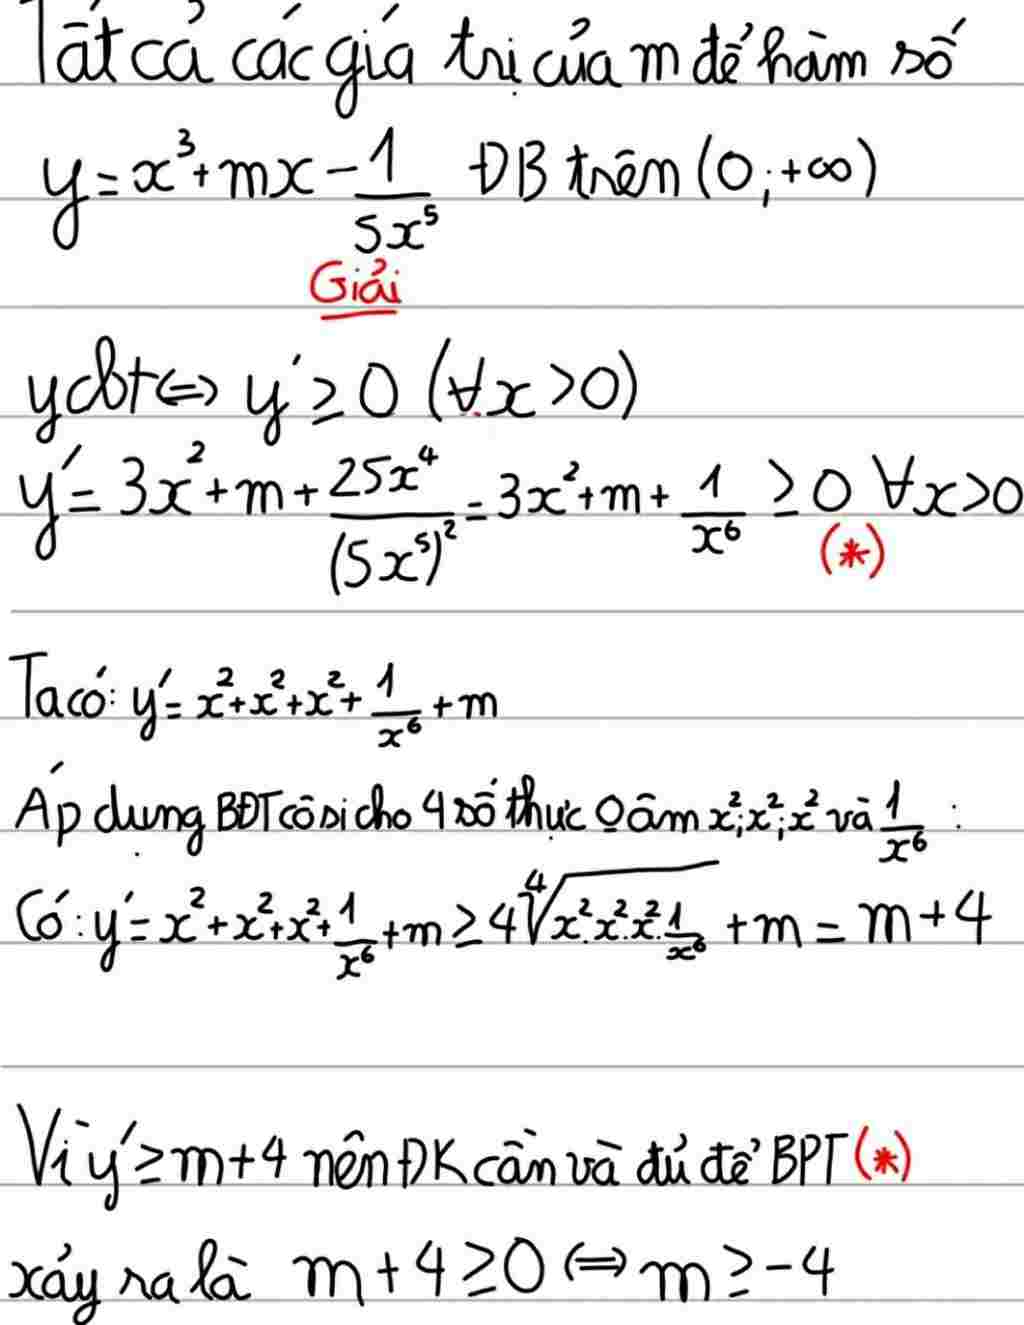 Tất cả các giá trị của m để hàm số
y = x³ + mx - 1/(5x⁵) ĐB trên (0; +∞)
Giải
ycbt ⇔ y' ≥ 0 (∀x > 0)
y' = 3x² + m + 25x⁴/(5x⁵)² = 3x² + m + 1/x⁶ ≥ 0 ∀x > 0
(*)
Ta có: y' = x² + x² + x² + 1/x⁶ + m
Áp dụng BĐT côsi cho 4 số thực 0 âm x²; x²; x² và 1/x⁶ :
Có: y' = x² + x² + x² + 1/x⁶ + m ≥ 4⁴√(x².x².x².1/x⁶) + m = m + 4
Vì y' ≥ m + 4 nên ĐK cần và đủ để BPT (*)
xảy ra là m + 4 ≥ 0 ⇔ m ≥ -4